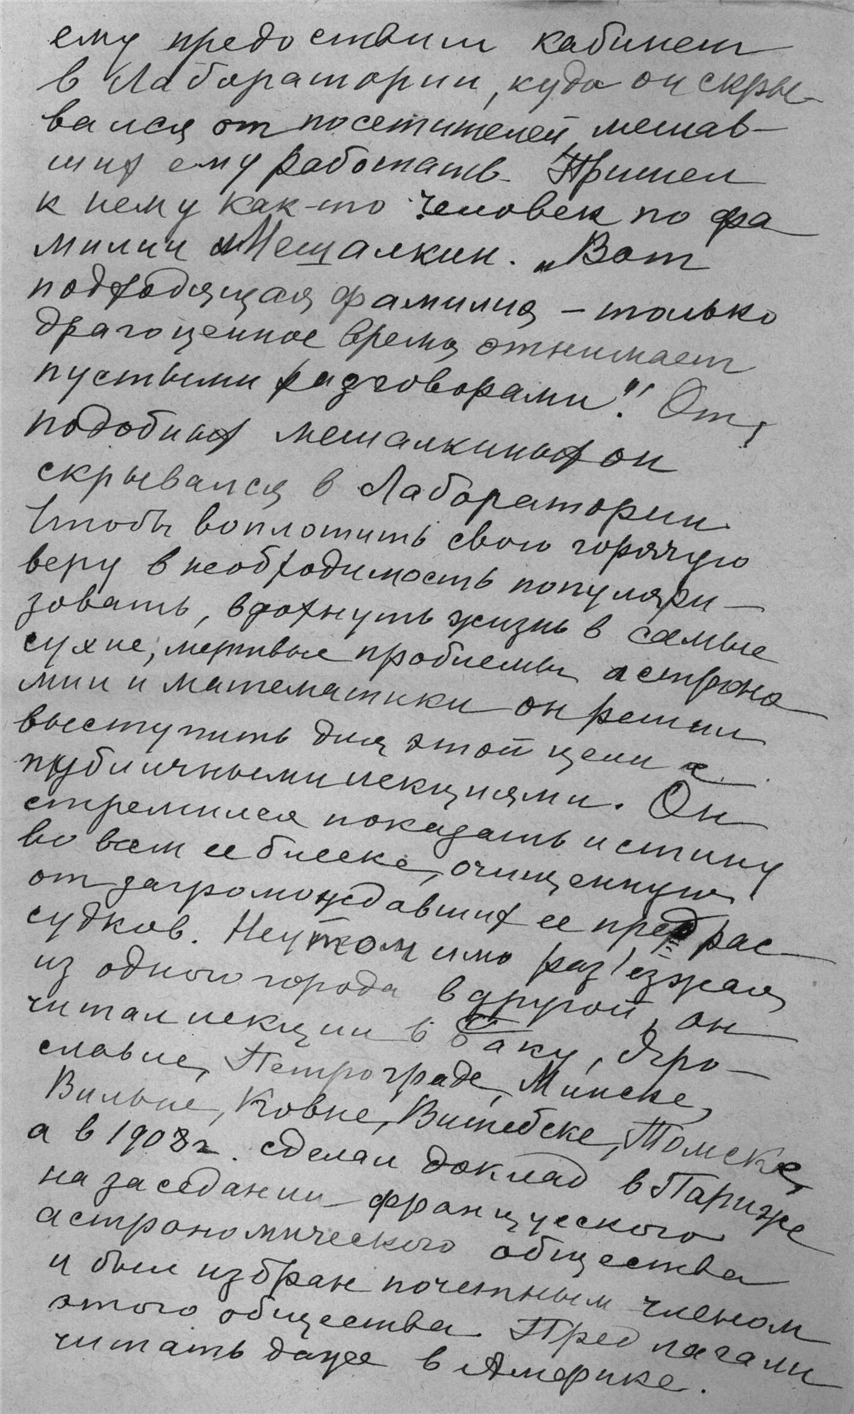 ему предоставили кабинет
в Лаборатории, куда он скры-
вался от посетителей мешав-
ших ему работать. Пришел
к нему как-то человек по фа
милии Мешалкин. „Вот
подходящая фамилия – только
драгоценное время отнимает
пустыми разговорами"! От
подобных мешалкиных он
скрывался в Лаборатории
Чтобы воплотить свою горячую
веру в необходимость популяри-
зовать, вдохнуть жизнь в самые
сухие, мертвые проблемы астроно
мии и математики он решил
выступить для этой цели с
публичными лекциями. Он
стремился показать истину
во всем ее блеске, очищенную
от загромождавших ее предрас-
судков. Неутомимо раз'езжая
из одного города в другой, он
читал лекции в Баку, Яро-
славле, Петрограде, Минске,
Вильне, Ковне, Витебске, Томске,
а в 1908 г. сделал доклад в Париже
на заседании французского
астрономического общества
и был избран почетным членом
этого общества. Предлагали
читать даже в Америке.